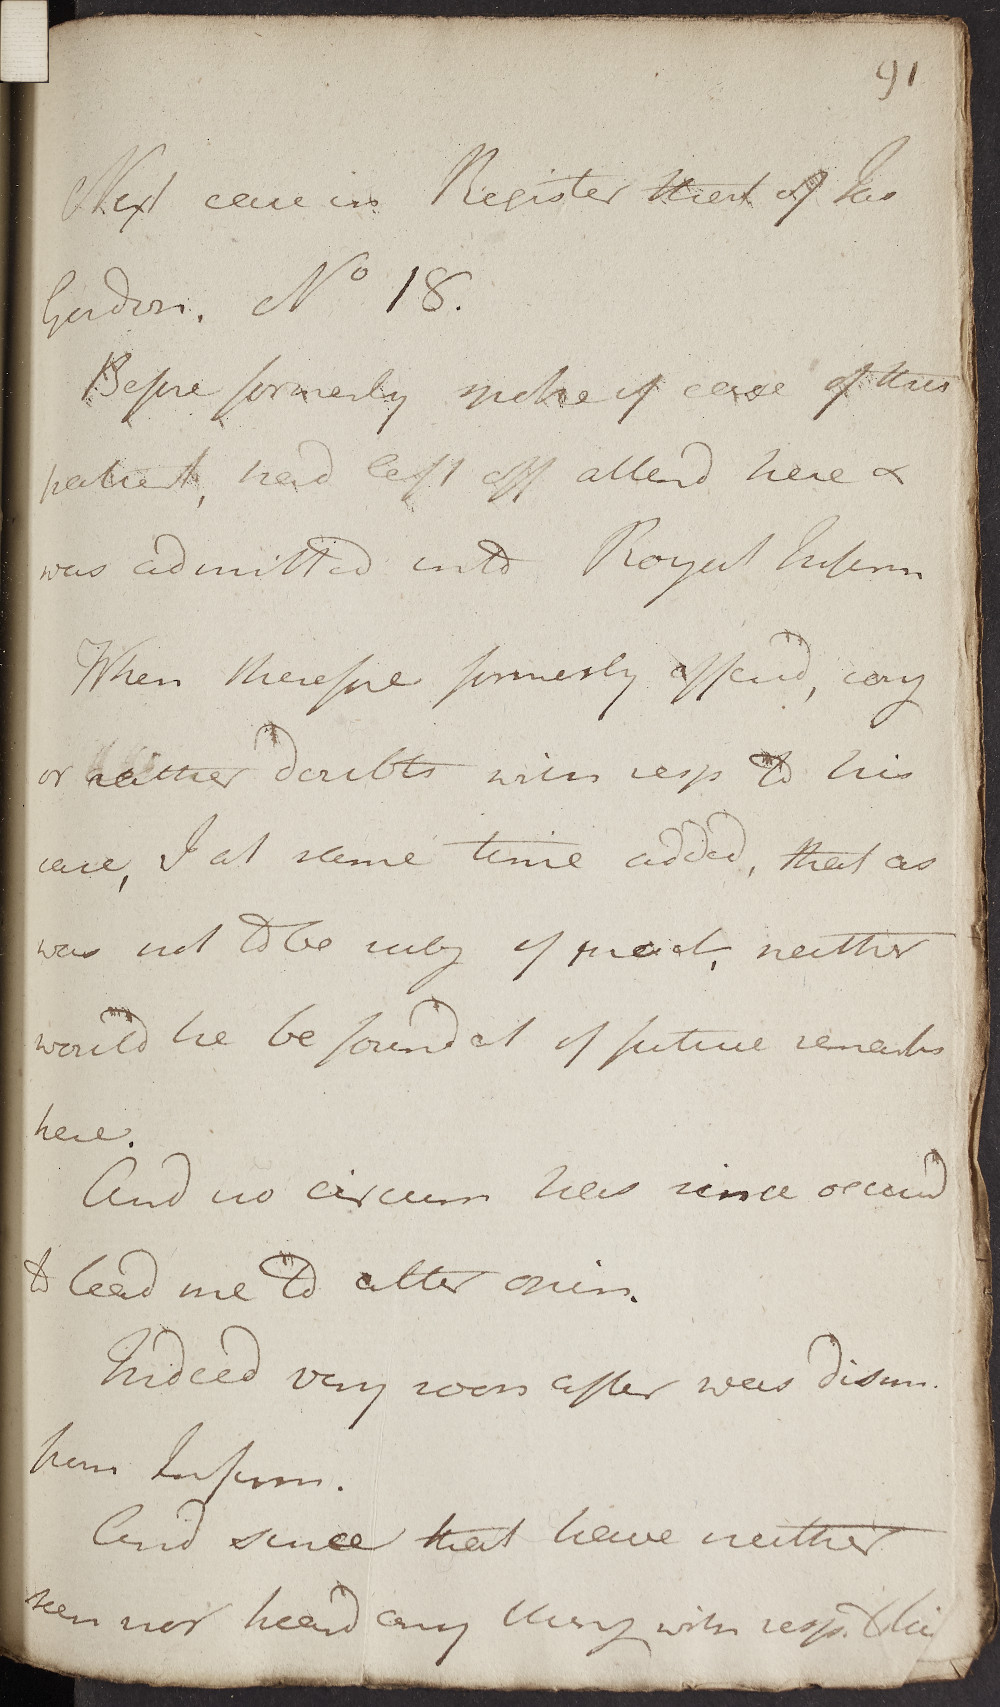 91
Next case in Register that of Jas
Gordon. No 18.
Before formerly spoke of case of this
patient, had left off attend here &
was admitted into Royal Infirm
When therefore formerly offerd, conj
or rather doubts with resp to his
case, I at same time added, that as
was not to be subj of pract, neither
would he be found at of future remarks
here.
And no circum has since occurd
to lead me to alter opin.
Indeed very soon after was dism.
from Infirm.
And since that have neither
seen nor heard any thing with resp. to his